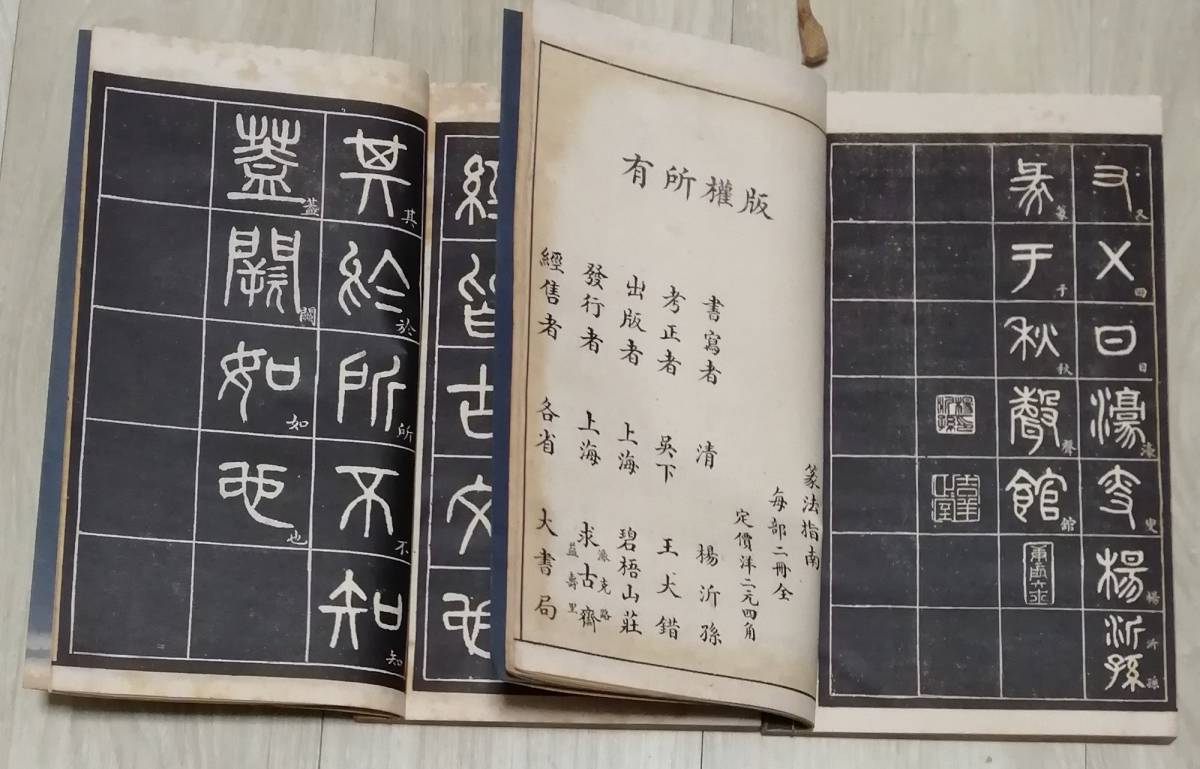 又四日濠叟楊沂孫
篆于秋聲館
版權所有
篆法指南
每部二冊全
定價洋二元四角
書寫者 清 楊沂孫
考正者 吳下 王大錯
出版者 上海 碧梧山莊
發行者 上海 派克路益壽里 求古齋
經售者 各省 大書局
經皆古文也
其於所不知
蓋闕如也